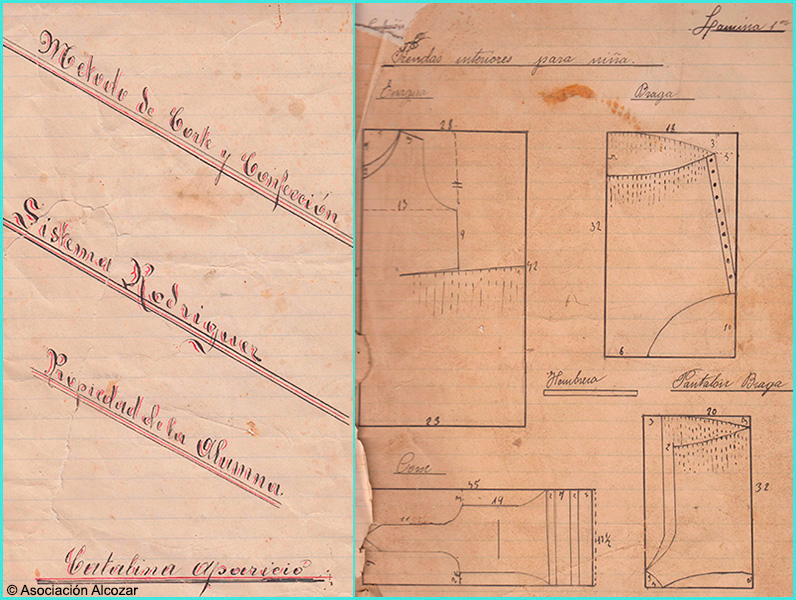 Metodo de Corte y Confección
Sistema Rodriguez
Propiedad de la Alumna
Catalina Aparicio
© Asociación Alcozar
Lamina 1ª
Prendas interiores para niña.
Enagua
Braga
28
3
13
9
42
23
18
3
5
32
10
6
Hombrera
Pantalón Braga
20
3
2
32
Corse
35
14
11
11 ½